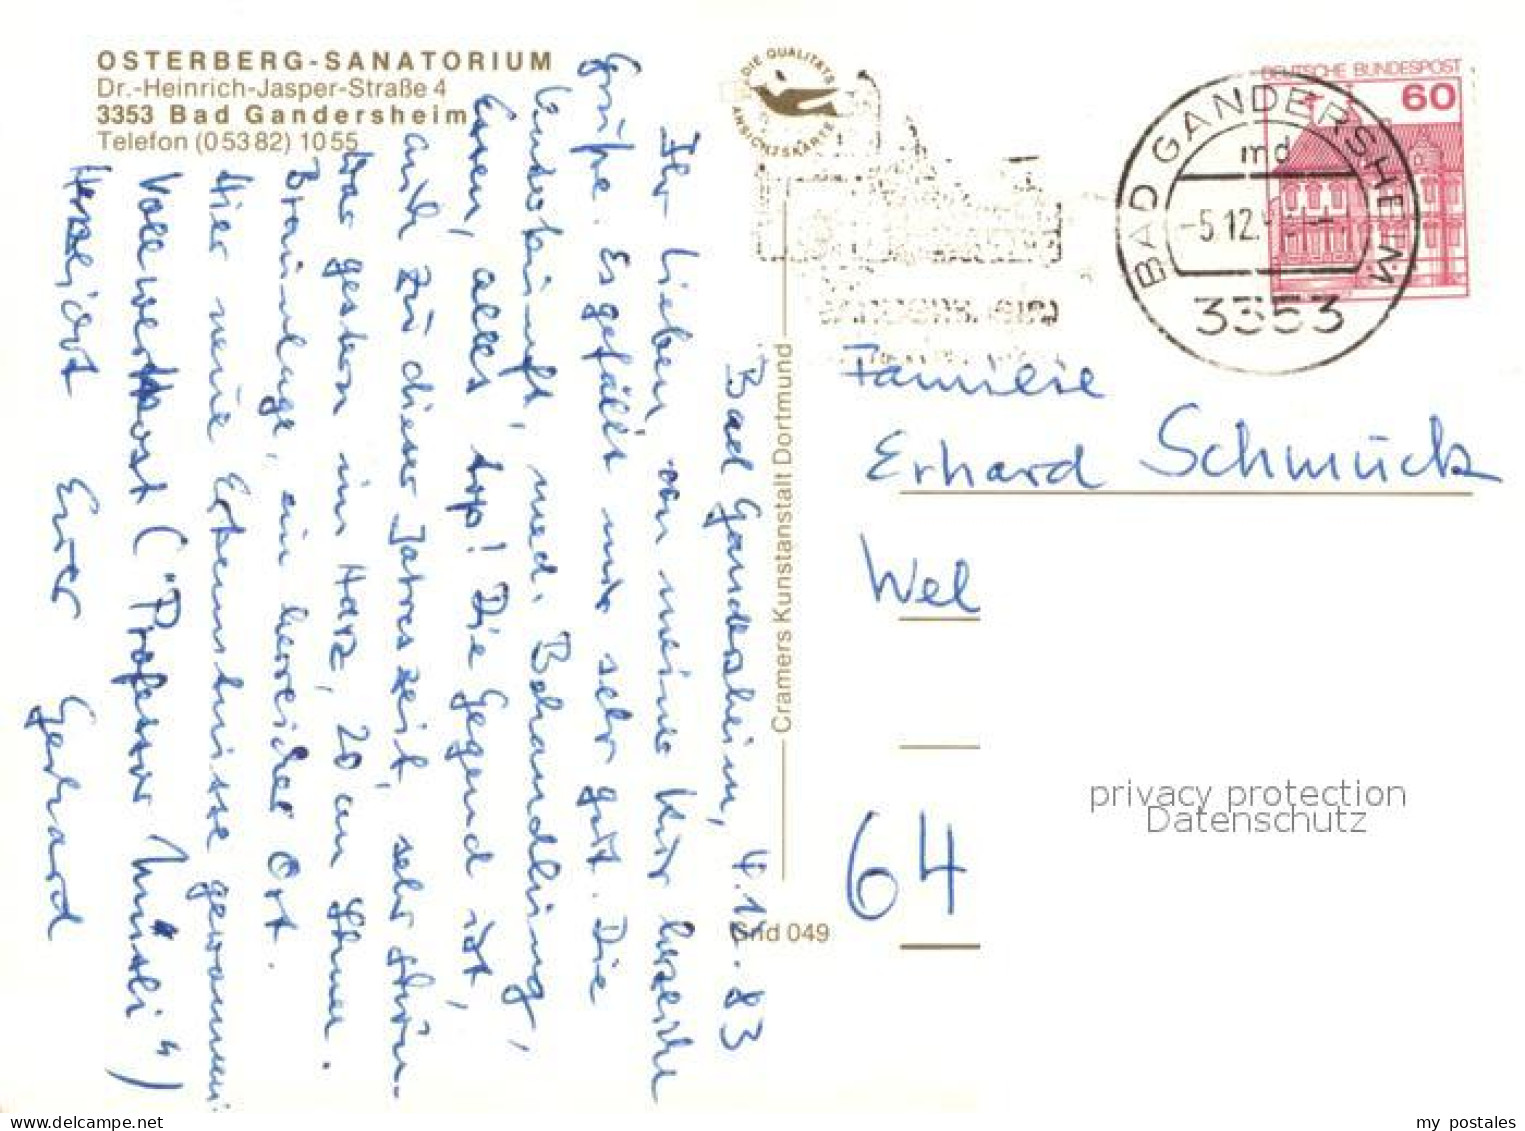 OSTERBERG-SANATORIUM
Dr.-Heinrich-Jasper-Straße 4
3353 Bad Gandersheim
Telefon (05382) 1055
Bad Gandersheim, 4.12.83
Ihr Lieben, von meiner Kur herzliche
Grüße. Es gefällt mir sehr gut. Die
Unterkunft, med. Behandlung,
Essen, alles top! Die Gegend ist,
auch zu dieser Jahreszeit, sehr schön.
War gestern im Harz, 20 cm Schnee.
Braunlage, ein herrlicher Ort.
Hier neue Erkenntnisse gewonnen:
Vollwertkost ("Professor Müsli")
Herzlichst Euer Gerhard
DIE QUALITÄTS
ANSICHTSKARTE
Cramers Kunstanstalt Dortmund
Gnd 049
DEUTSCHE BUNDESPOST
60
BAD GANDERSHEIM
md
-5.12.
3353
Familie
Erhard Schmück
Wel
64
privacy protection
Datenschutz
my postales